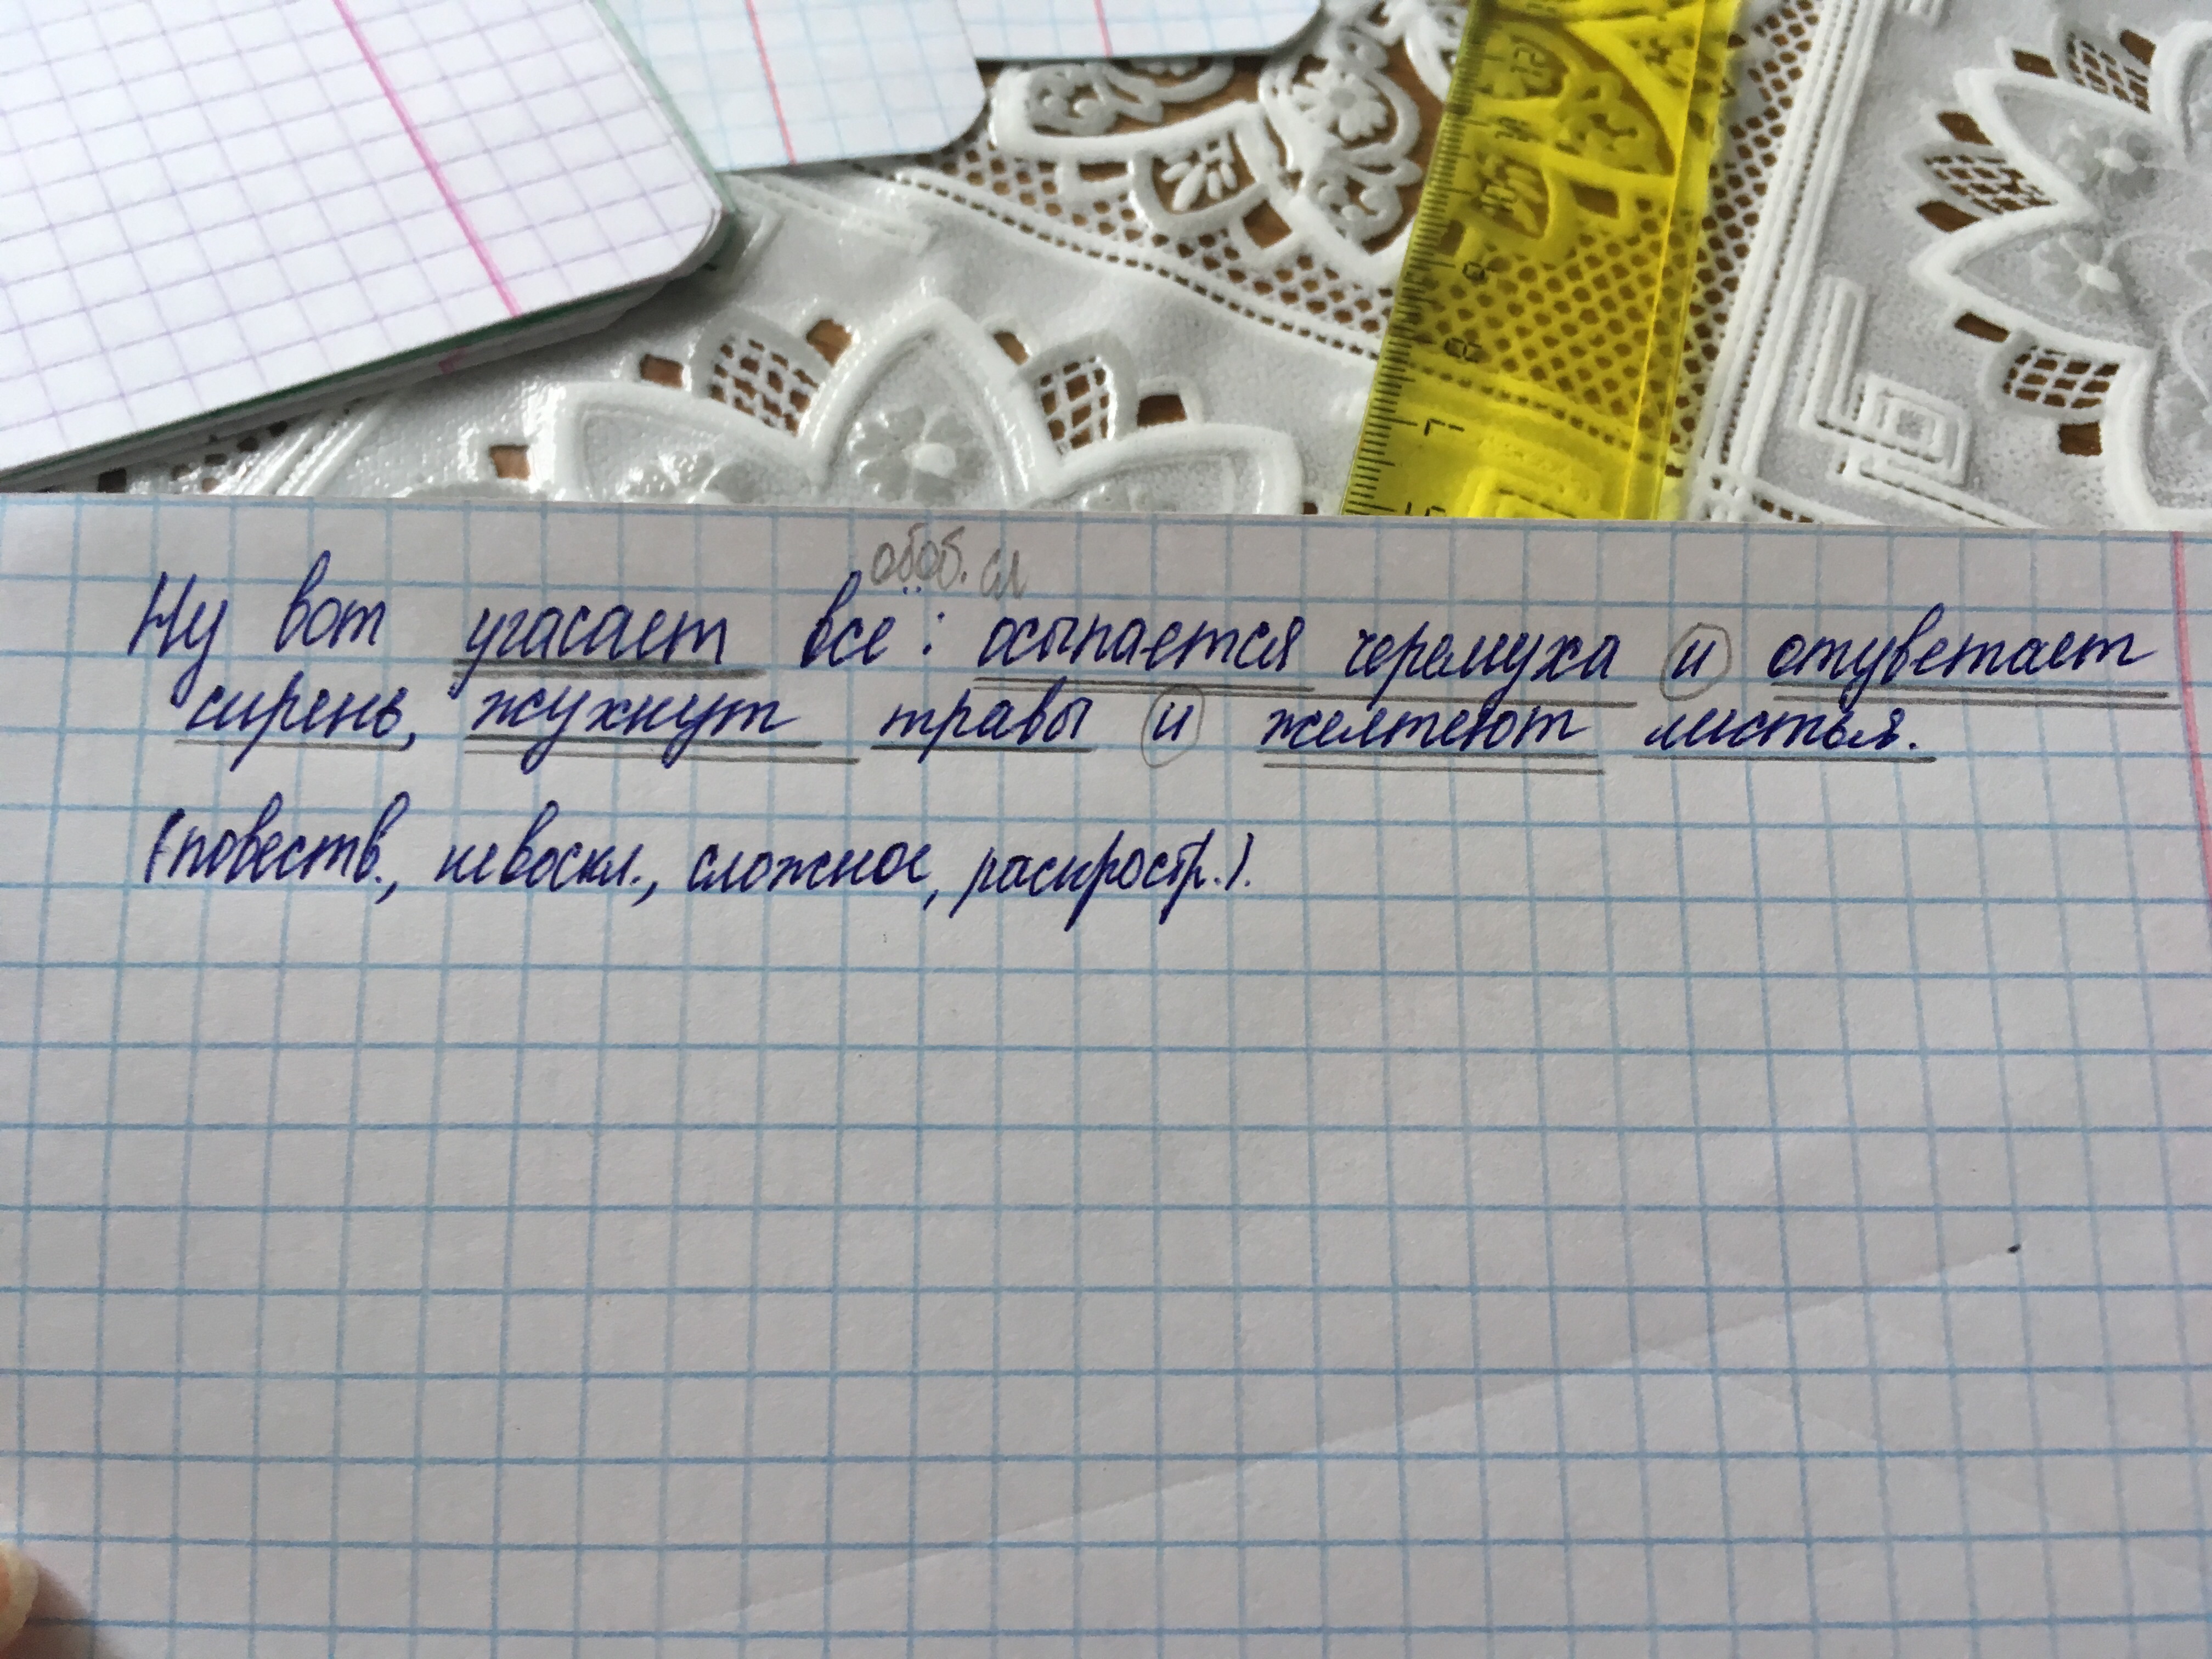 обоб. сл
Ну вот угасает всё: осыпается черемуха и отцветает
сирень, жухнут травы и желтеют листья.
(повеств., невоскл., сложное, распростр.).
7
8
9